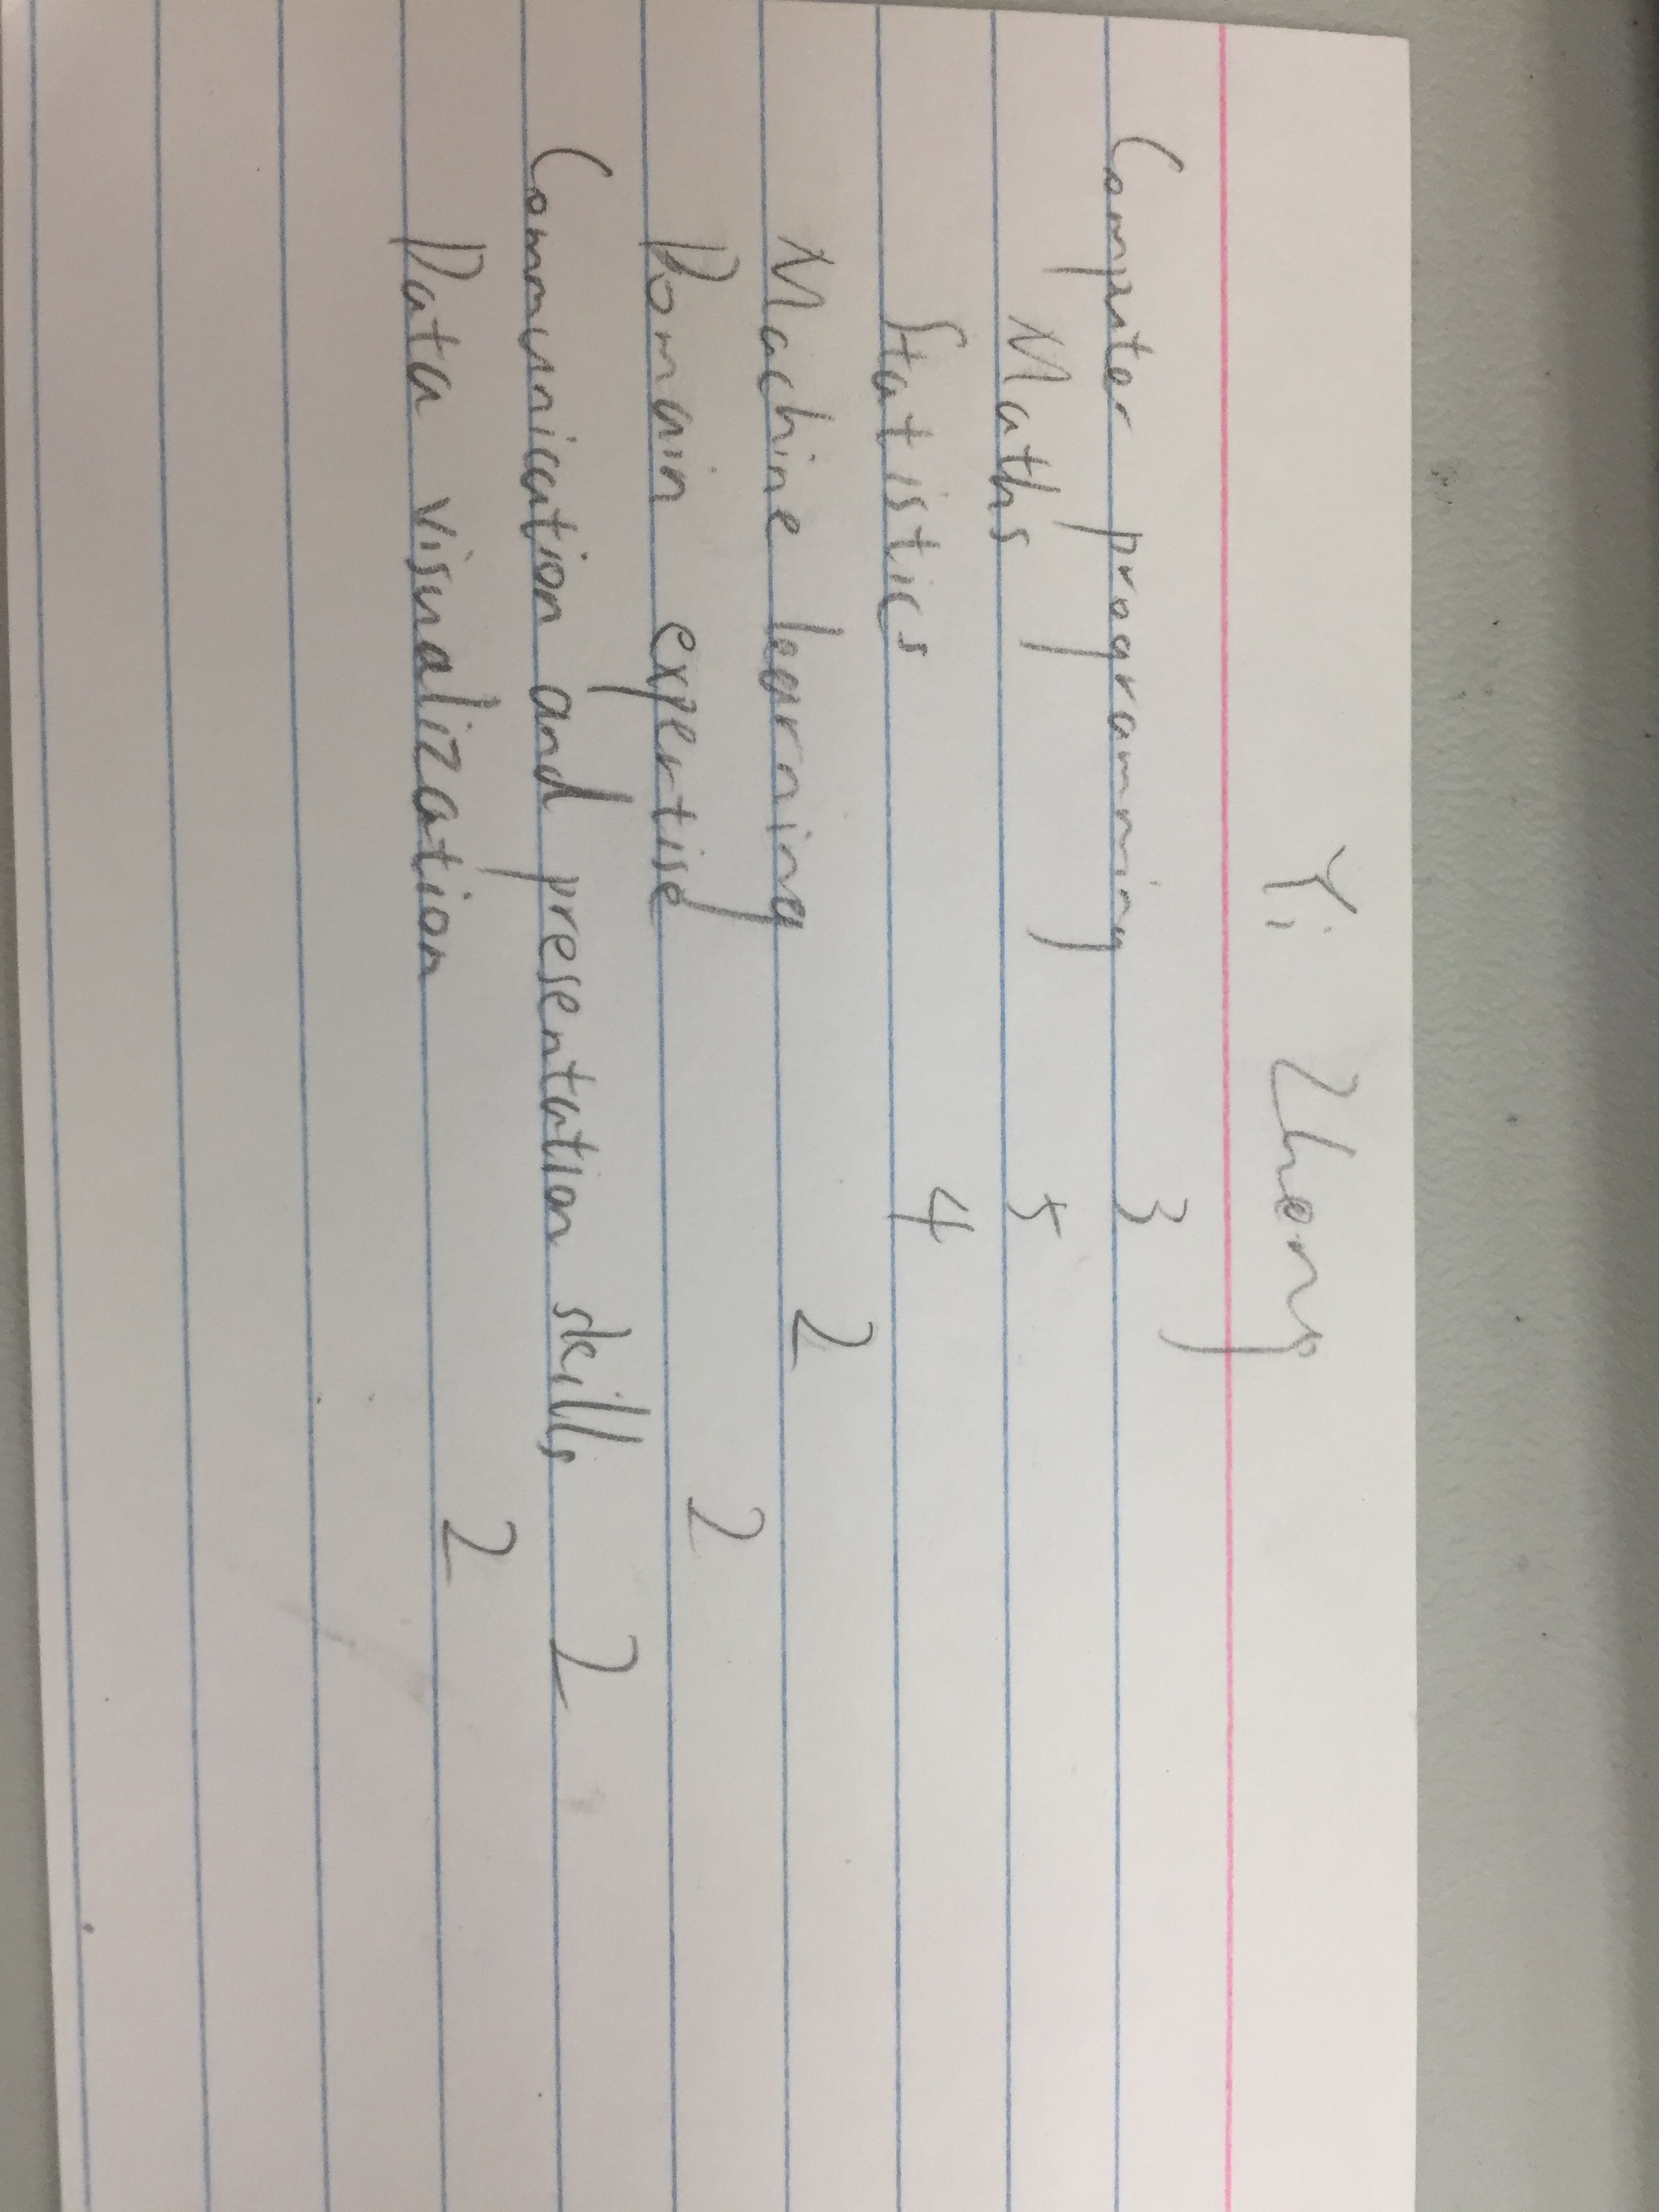 Yi Zheng
Computer programming 3
Maths 5
Statistics 4
Machine learning 2
Domain expertise 2
Communication and presentation skills 2
Data visualization 2